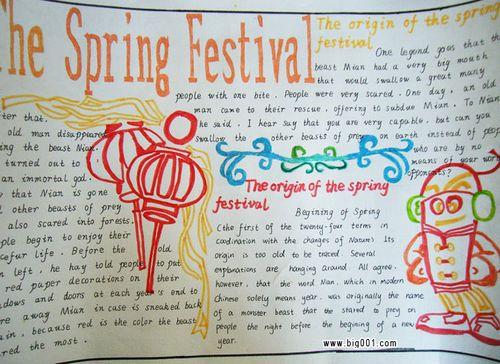 The Spring Festival
The origin of the spring
festival
One legend goes that the
beast Nian had a very big mouth
that would swallow a great many
people with one bite. People were very scared. One day, an old
man came to their rescue, offering to subdue Nian. To Nian
he said, I hear say that you are very capable, but can you
swallow the other beasts of prey on earth instead of people
who are by no
means of your worthy
opponents?
ter that,
old man disappeared
ing the beast Nian.
turned out to
an immortal god.
w that Nian is gone
d other beasts of prey
also scared into forests.
ople begin to enjoy their
aceful life. Before the old
n left, he hay told people to put
red paper decorations on their
dows and doors at each year's end to
re away Nian in case is sneaked back
ain, because red is the color the beast
ared the most.
The origin of the spring
festival
Begining of Spring
(the first of the twenty-four terms in
coodination with the changes of Nature) Its
origin is too old to be traced. Several
explanations are hanging around. All agree,
however, that the word Nian, which in modern
Chinese solely means year, was originally the name
of a monster beast that the stared to prey on
people the night before the begining of a new
year.
www.big001.com